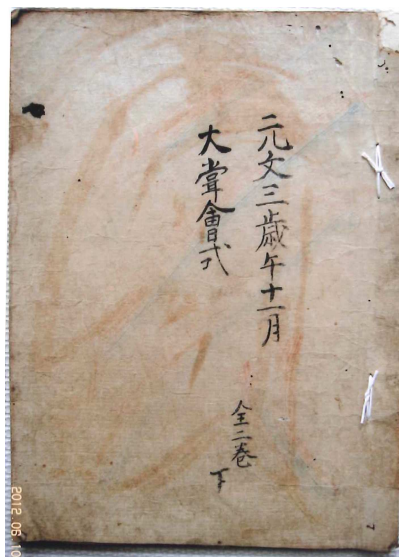 元文三歳午十一月
大嘗會式
全二巻
下
2012 06 10